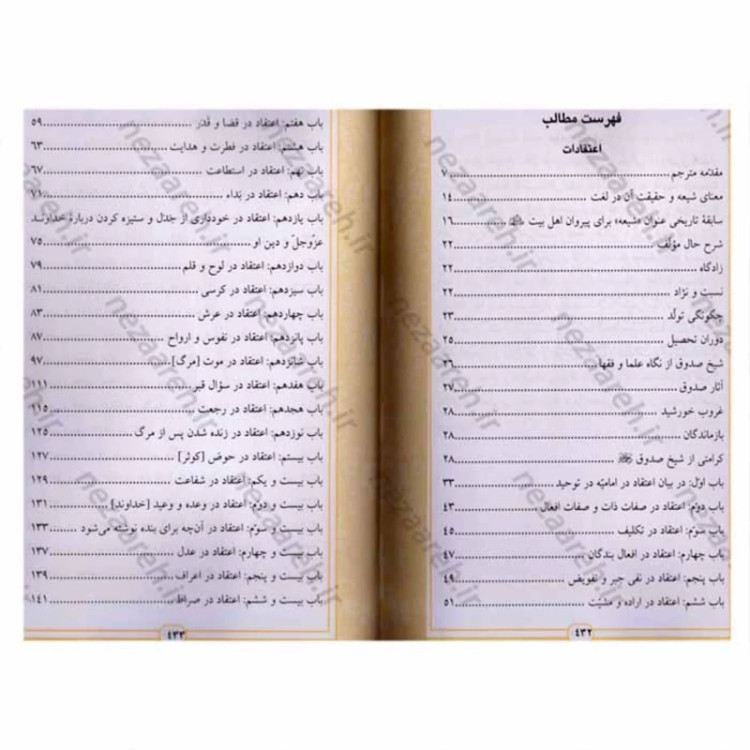 فهرست مطالب
اعتقادات
مقدّمه مترجم ........ ۷
معنای شیعه و حقیقت آن در لغت ........ ۱۴
سابقهٔ تاریخی عنوان «شیعه» برای پیروان اهل بیت ........ ۱۶
شرح حال مؤلف ........ ۲۲
زادگاه ........ ۲۲
نسبت و نژاد ........ ۲۲
چگونگی تولّد ........ ۲۳
دوران تحصیل ........ ۲۵
شیخ صدوق از نگاه علما و فقها ........ ۲۶
آثار صدوق ........ ۲۷
غروب خورشید ........ ۲۸
بازماندگان ........ ۲۸
کرامتی از شیخ صدوق ........ ۲۸
باب اوّل: در بیان اعتقاد در امامیّه در توحید ........ ۳۳
باب دوّم: اعتقاد در صفات ذات و صفات افعال ........ ۴۳
باب سّوم: اعتقاد در تکلیف ........ ۴۵
باب چهارم: اعتقاد در افعال بندگان ........ ۴۷
باب پنجم: اعتقاد در نفی جبر و تفویض ........ ۴۹
باب ششم: اعتقاد در اراده و مشیّت ........ ۵۱
۴۳۲
باب هفتم: اعتقاد در قضا و قَدَر ........ ۵۹
باب هشتم: اعتقاد در فطرت و هدایت ........ ۶۳
باب نهم: اعتقاد در استطاعت ........ ۶۷
باب دهم: اعتقاد در بَداء ........ ۷۱
باب یازدهم: اعتقاد در خودداری از جدل و ستیزه کردن دربارهٔ خداوند
عزّوجلّ و دین او ........ ۷۵
باب دوازدهم: اعتقاد در لوح و قلم ........ ۷۹
باب سیزدهم: اعتقاد در کرسی ........ ۸۱
باب چهاردهم: اعتقاد در عرش ........ ۸۳
باب پانزدهم: اعتقاد در نفوس و ارواح ........ ۸۷
باب شانزدهم: اعتقاد در موت [مرگ] ........ ۹۷
باب هفدهم: اعتقاد در سؤال قبر ........ ۱۱۱
باب هجدهم: اعتقاد در رجعت ........ ۱۱۵
باب نوزدهم: اعتقاد در زنده شدن پس از مرگ ........ ۱۲۵
باب بیستم: اعتقاد در حوض [کوثر] ........ ۱۲۷
باب بیست و یکم: اعتقاد در شفاعت ........ ۱۲۹
باب بیست و دوّم: اعتقاد در وعده و وعید [خداوند] ........ ۱۳۱
باب بیست و سّوم: اعتقاد در آن‌چه برای بنده نوشته می‌شود ........ ۱۳۳
باب بیست و چهارم: اعتقاد در عدل ........ ۱۳۷
باب بیست و پنجم: اعتقاد در اعراف ........ ۱۳۹
باب بیست و ششم: اعتقاد در صراط ........ ۱۴۱
۴۳۳
nezaareh.ir